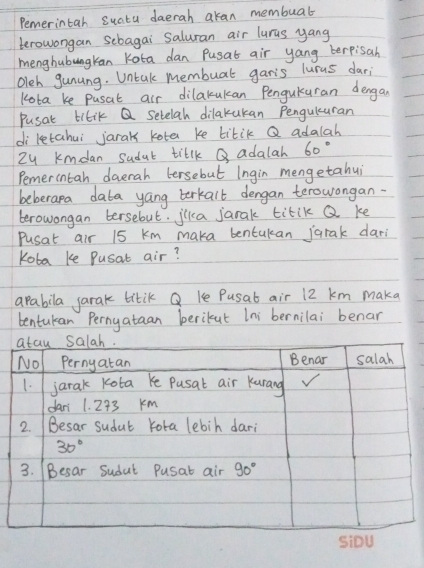 Pemerintah suatu daerah akan membuat
terowongan sebagai saluran air lurus yang
menghubungkan kota dan Pusat air yang terpisah
oleh gunung. Untuk membuat garis lurus dari
kota ke Pusat air dilakukan Pengukuran dengan
Pusat titik Q setelah dilakukan Pengukuran
di ketahui jarak kota ke titik Q adalah
24 km dan sudut titik Q adalah 60°
Pemerintah daerah tersebut Ingin mengetahui
beberapa data yang terkait dengan terowongan-
terowongan tersebut. jika jarak titik Q ke
Pusat air 15 km maka tentukan jarak dari
Kota ke Pusat air?
apabila jarak titik Q ke Pusat air 12 km maka
tentukan Pernyataan berikut Ini bernilai benar
atau salah.
No Pernyatan Benar Salah
1. jarak kota ke Pusat air kurang ✓
dari 1.273 km
2. Besar sudut kota lebih dari
30°
3. Besar Sudut Pusat air 90°
SiDU